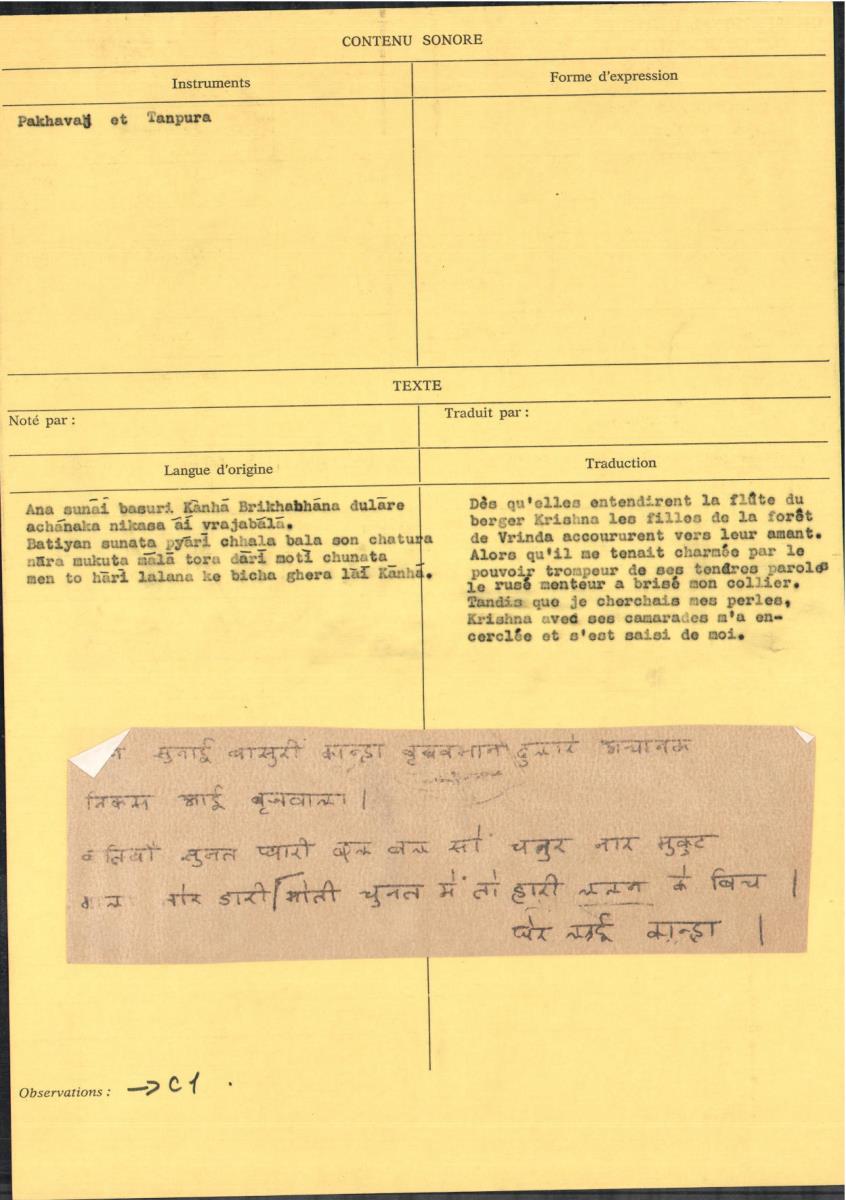 CONTENU SONORE
Instruments
Forme d'expression
Pakhavaj et Tanpura
TEXTE
Noté par :
Traduit par :
Langue d'origine
Traduction
Ana sunāī basuri Kānhā Brikhabhāna dulāre
achānaka nikasa āī vrajabālā.
Batiyan sunata pyārī chhala bala son chatura
nāra mukuta mālā tora dārī motī chunata
men to hārī lalana ke bicha ghera lāī Kānhā.
Dès qu'elles entendirent la flûte du
berger Krishna les filles de la forêt
de Vrinda accoururent vers leur amant.
Alors qu'il me tenait charmée par le
pouvoir trompeur de ses tendres paroles
le rusé menteur a brisé mon collier.
Tandis que je cherchais mes perles,
Krishna avec ses camarades m'a en-
cerclée et s'est saisi de moi.
सुनाई बासुरी कान्हा बृखभान दुलारे अचानक
निकस आई बृजबाला।
बतियाँ सुनत प्यारी छल बल सों चतुर नार मुकुट
तोर डारी मोती चुनत में तो हारी ललन के बिच।
घेर लाई कान्हा।
Observations : → C1 .